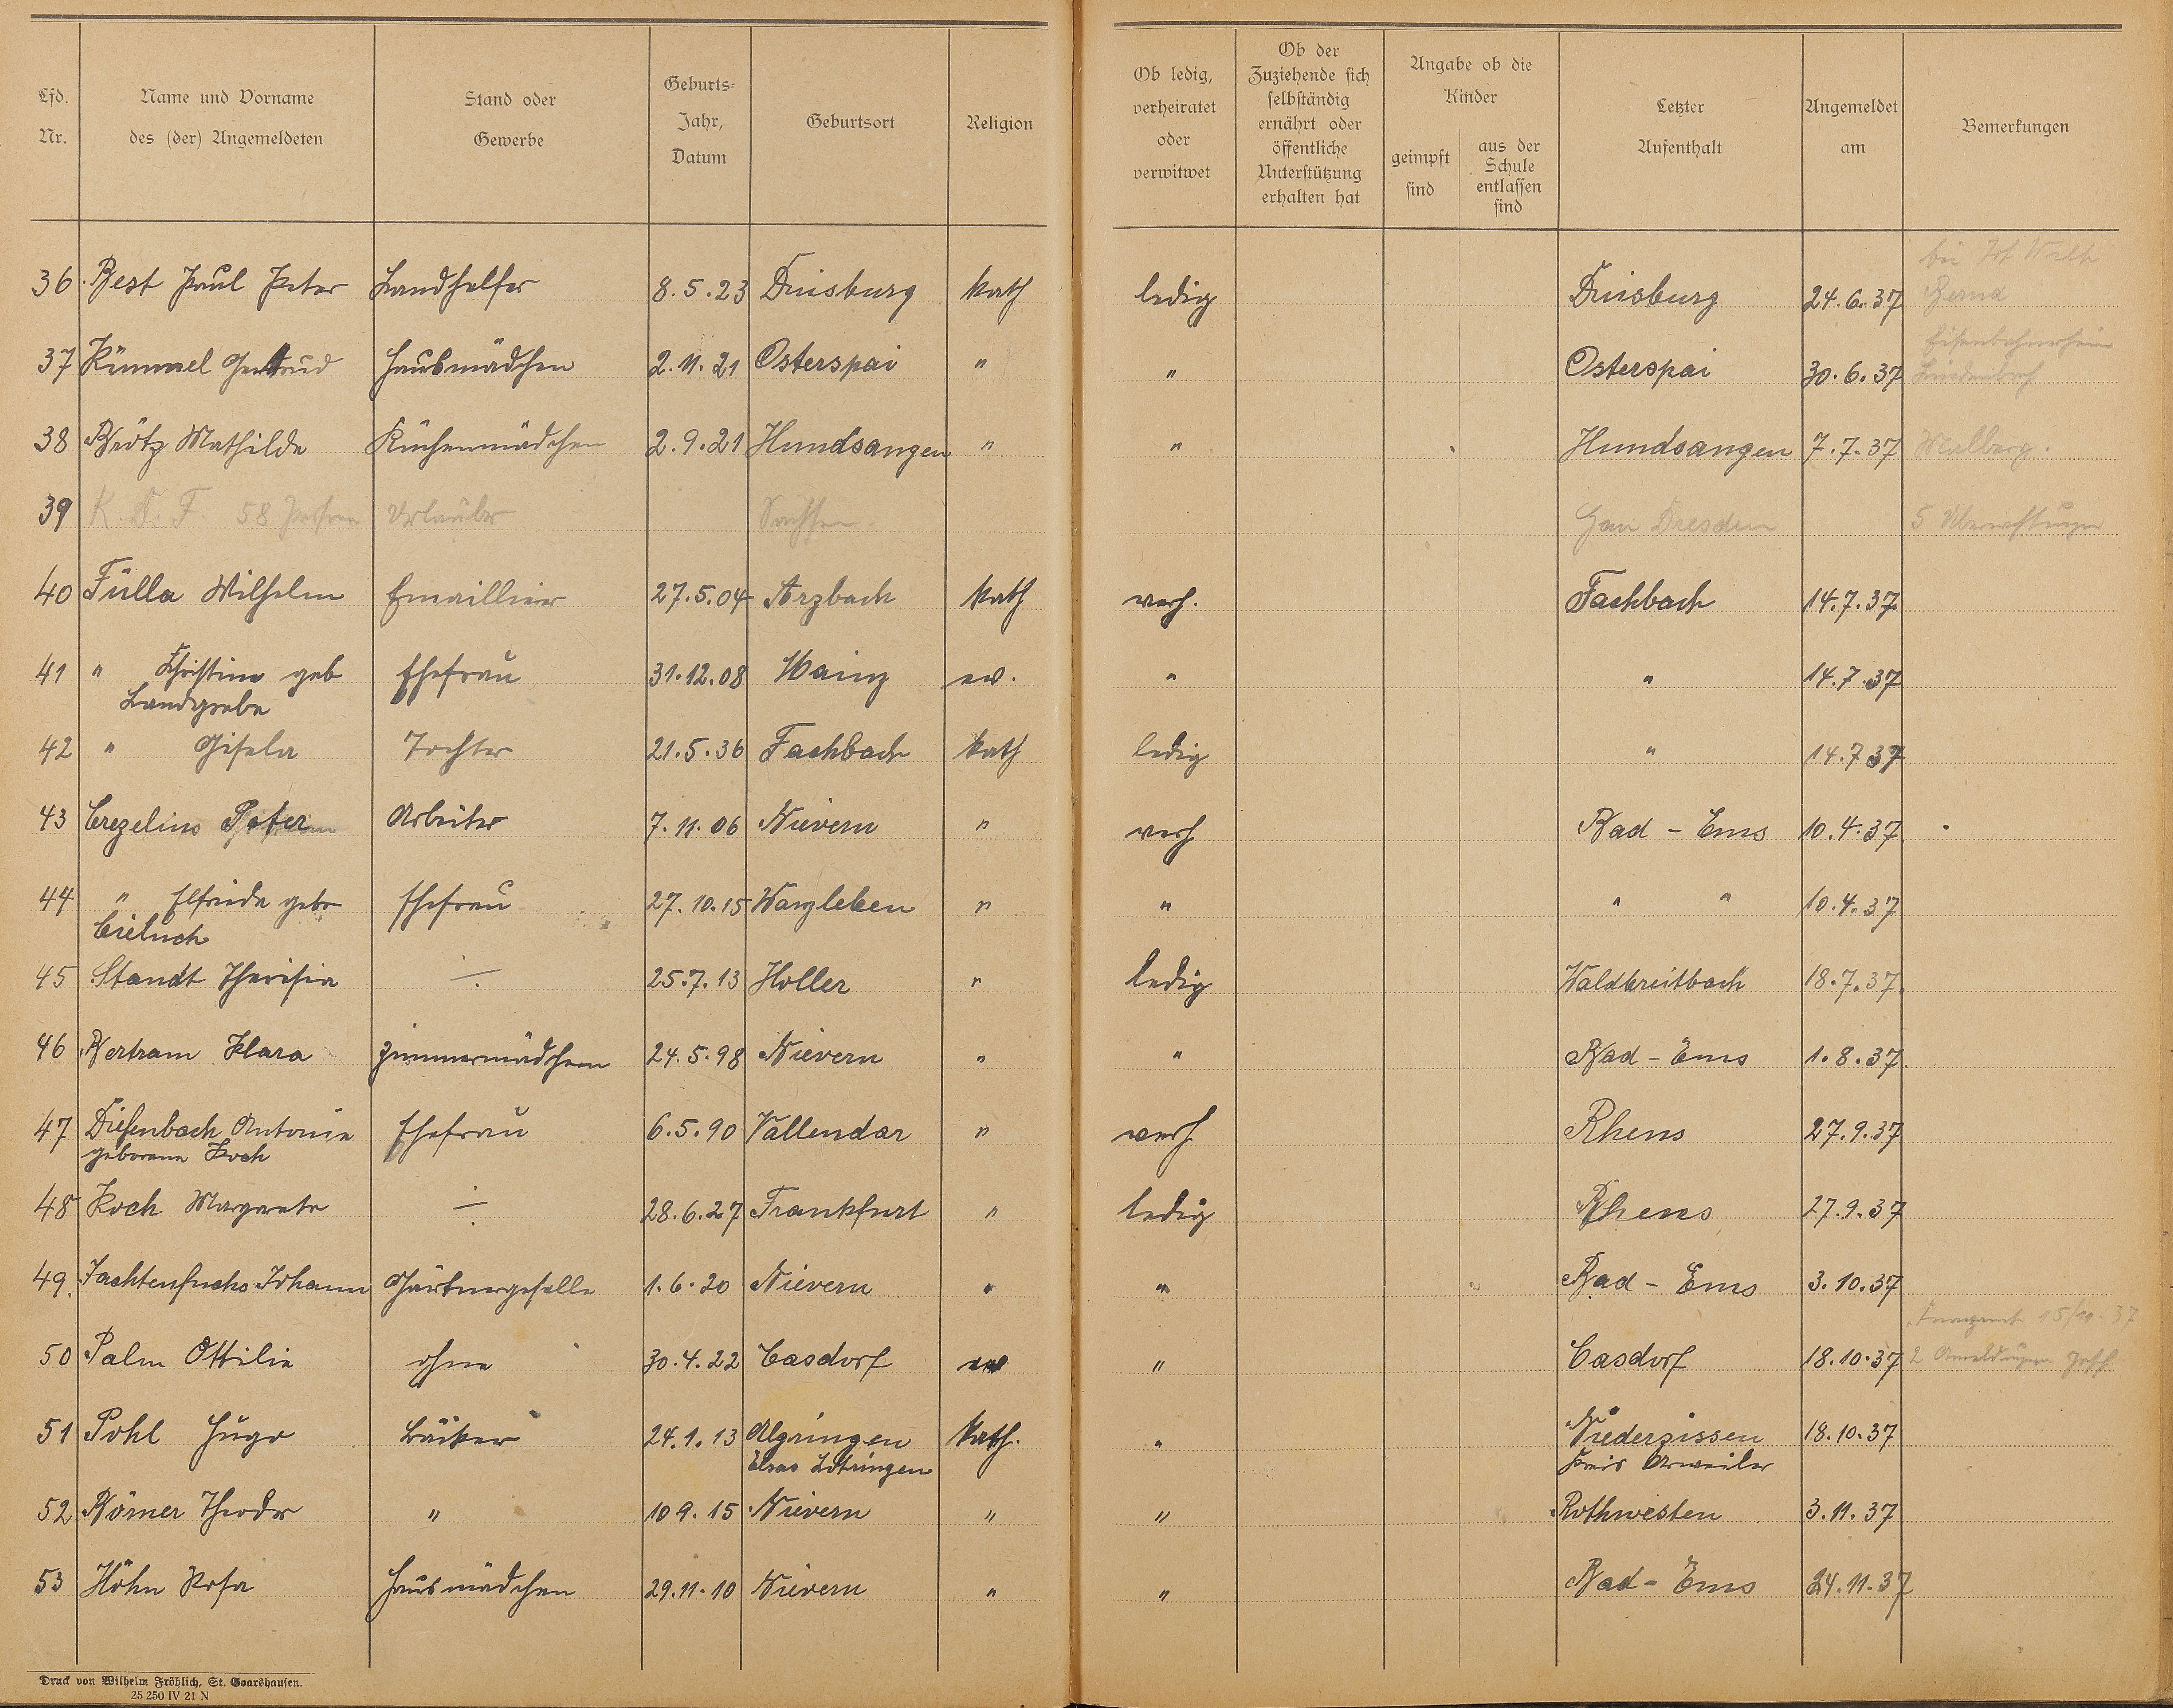 Lfd. Nr. | Name und Vorname des (der) Angemeldeten | Stand oder Gewerbe | Geburts-Jahr, Datum | Geburtsort | Religion | Ob ledig, verheiratet oder verwitwet | Ob der Zuziehende sich selbständig ernährt oder öffentliche Unterstützung erhalten hat | Angabe ob die Kinder geimpft sind | aus der Schule entlassen sind | Letzter Aufenthalt | Angemeldet am | Bemerkungen
36 Best Paul Peter Landhelfer 8.5.23 Duisburg kath ledig Duisburg 24.6.37 bei Wilh
37 Kümmel Gertrud Hausmädchen 2.11.21 Osterspai " " Osterspai 30.6.37 Eisenbahnerheim Lindenbach
38 Brötz Mathilde Küchenmädchen 2.9.21 Hundsangen " " Hundsangen 7.7.37 Malberg.
39 K. D. F. 58 Personen Urlauber Sachsen. Gau Dresden 5
40 Fülla Wilhelm Emaillierer 27.5.04 Arzbach kath verh. Fachbach 14.7.37.
41 " Christine geb Ehefrau 31.12.08 Mainz ev. " " 14.7.37
Landgrebe
42 " Gisela Tochter 21.5.36 Fachbach kath ledig " 14.7 37
43 Crezelius Peter Arbeiter 7.11.06 Nievern " verh Bad - Ems 10.4.37
44 " Elfriede geb Ehefrau 27.10.15 Wanzleben " " " " 10.4.37
Cieluch
45 Staudt Theresia ÷ 25.7.13 Holler " ledig Waldbreitbach 18.7.37.
46 Bertram Klara Zimmermädchen 24.5.98 Nievern " " Bad - Ems 1.8.37.
47 Diefenbach Antonie Ehefrau 6.5.90 Vallendar " verh Rhens 27.9.37
geborene Koch
48 Koch Margarete ÷ 28.6.27 Frankfurt " ledig Rhens 27.9.37
49. Jachtenfuchs Johann Gärtnergeselle 1.6.20 Nievern " " Bad - Ems 3.10.37
Finanzamt 15/10.37
50 Palm Ottilie ohne 30.4.22 Casdorf ev " Casdorf 18.10.37 2 Anmeldungen
51 Pohl Hugo Bäcker 24.1.13 Algringen kath. " Niederzissen 18.10.37
Elsas Lotringen Kreis Arweiler
52 Börner Theodor " 10 9.15 Nievern " " Rothwesten 3.11.37
53 Höhn Rosa Hausmädchen 29.11.10 Nievern " " Bad - Ems 24.11.37
Druck von Wilhelm Fröhlich, St. Goarshausen.
25 250 IV 21 N